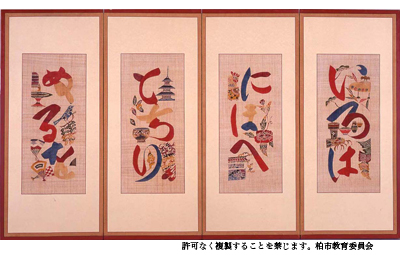 いろは
にほへ
とちり
ぬるを
許可なく複製することを禁じます。柏市教育委員会